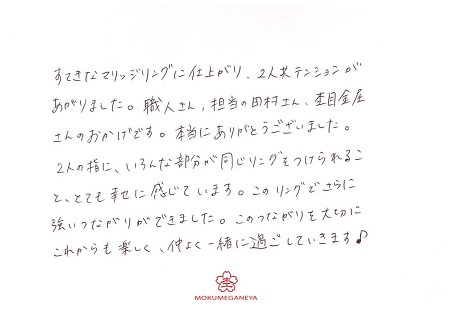 すてきなマリッジリングに仕上がり、2人共テンションが
あがりました。職人さん，担当の田村さん、杢目金屋
さんのおかげです。本当にありがとうございました。
2人の指に、いろんな部分が同じリングをつけられるこ
と、とても幸せに感じています。このリングでさらに
強いつながりができました。このつながりを大切に
これからも楽しく、仲よく一緒に過ごしていきます♪
杢
MOKUMEGANEYA